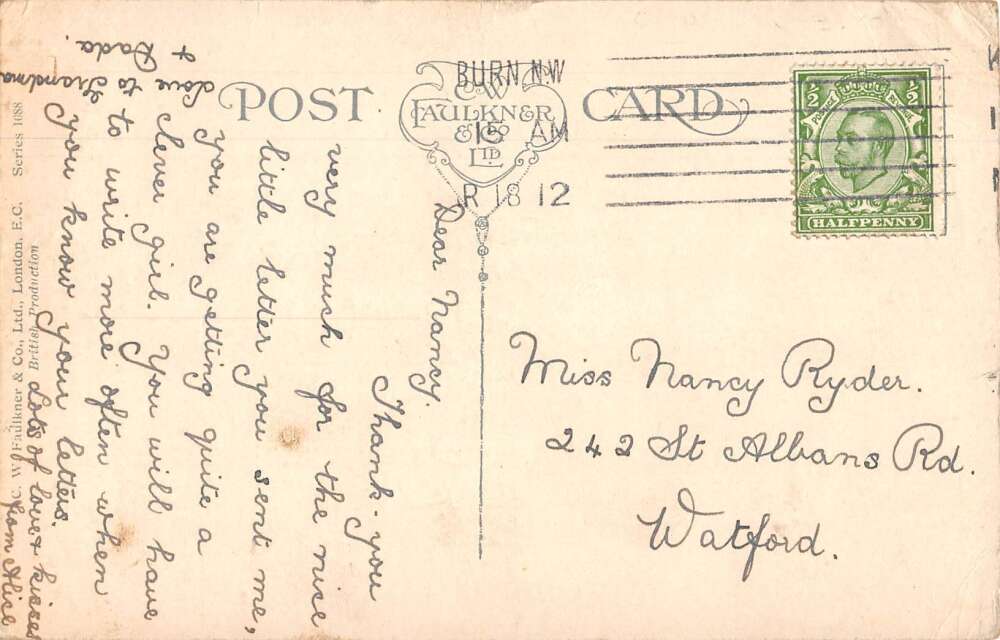 POST CARD
C.W. FAULKNER & Co. LTD.
BURN N.W
15 AM
R 18 12
1/2 POSTAGE REVENUE 1/2
HALFPENNY
Dear Nancy.
Thank-you
very much for the nice
little letter you sent me,
you are getting quite a
clever girl. You will have
to write more often when
you know your letters.
Lots of love & kisses
from Alice
Love to Grandma
& Dada.
Miss Nancy Ryder.
242 St Albans Rd.
Watford.
C. W. Faulkner & Co., Ltd., London, E.C. Series 1088
British Production